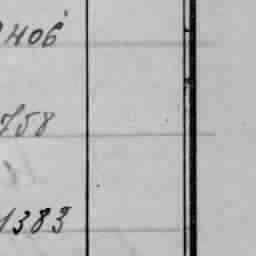 406
758
1383